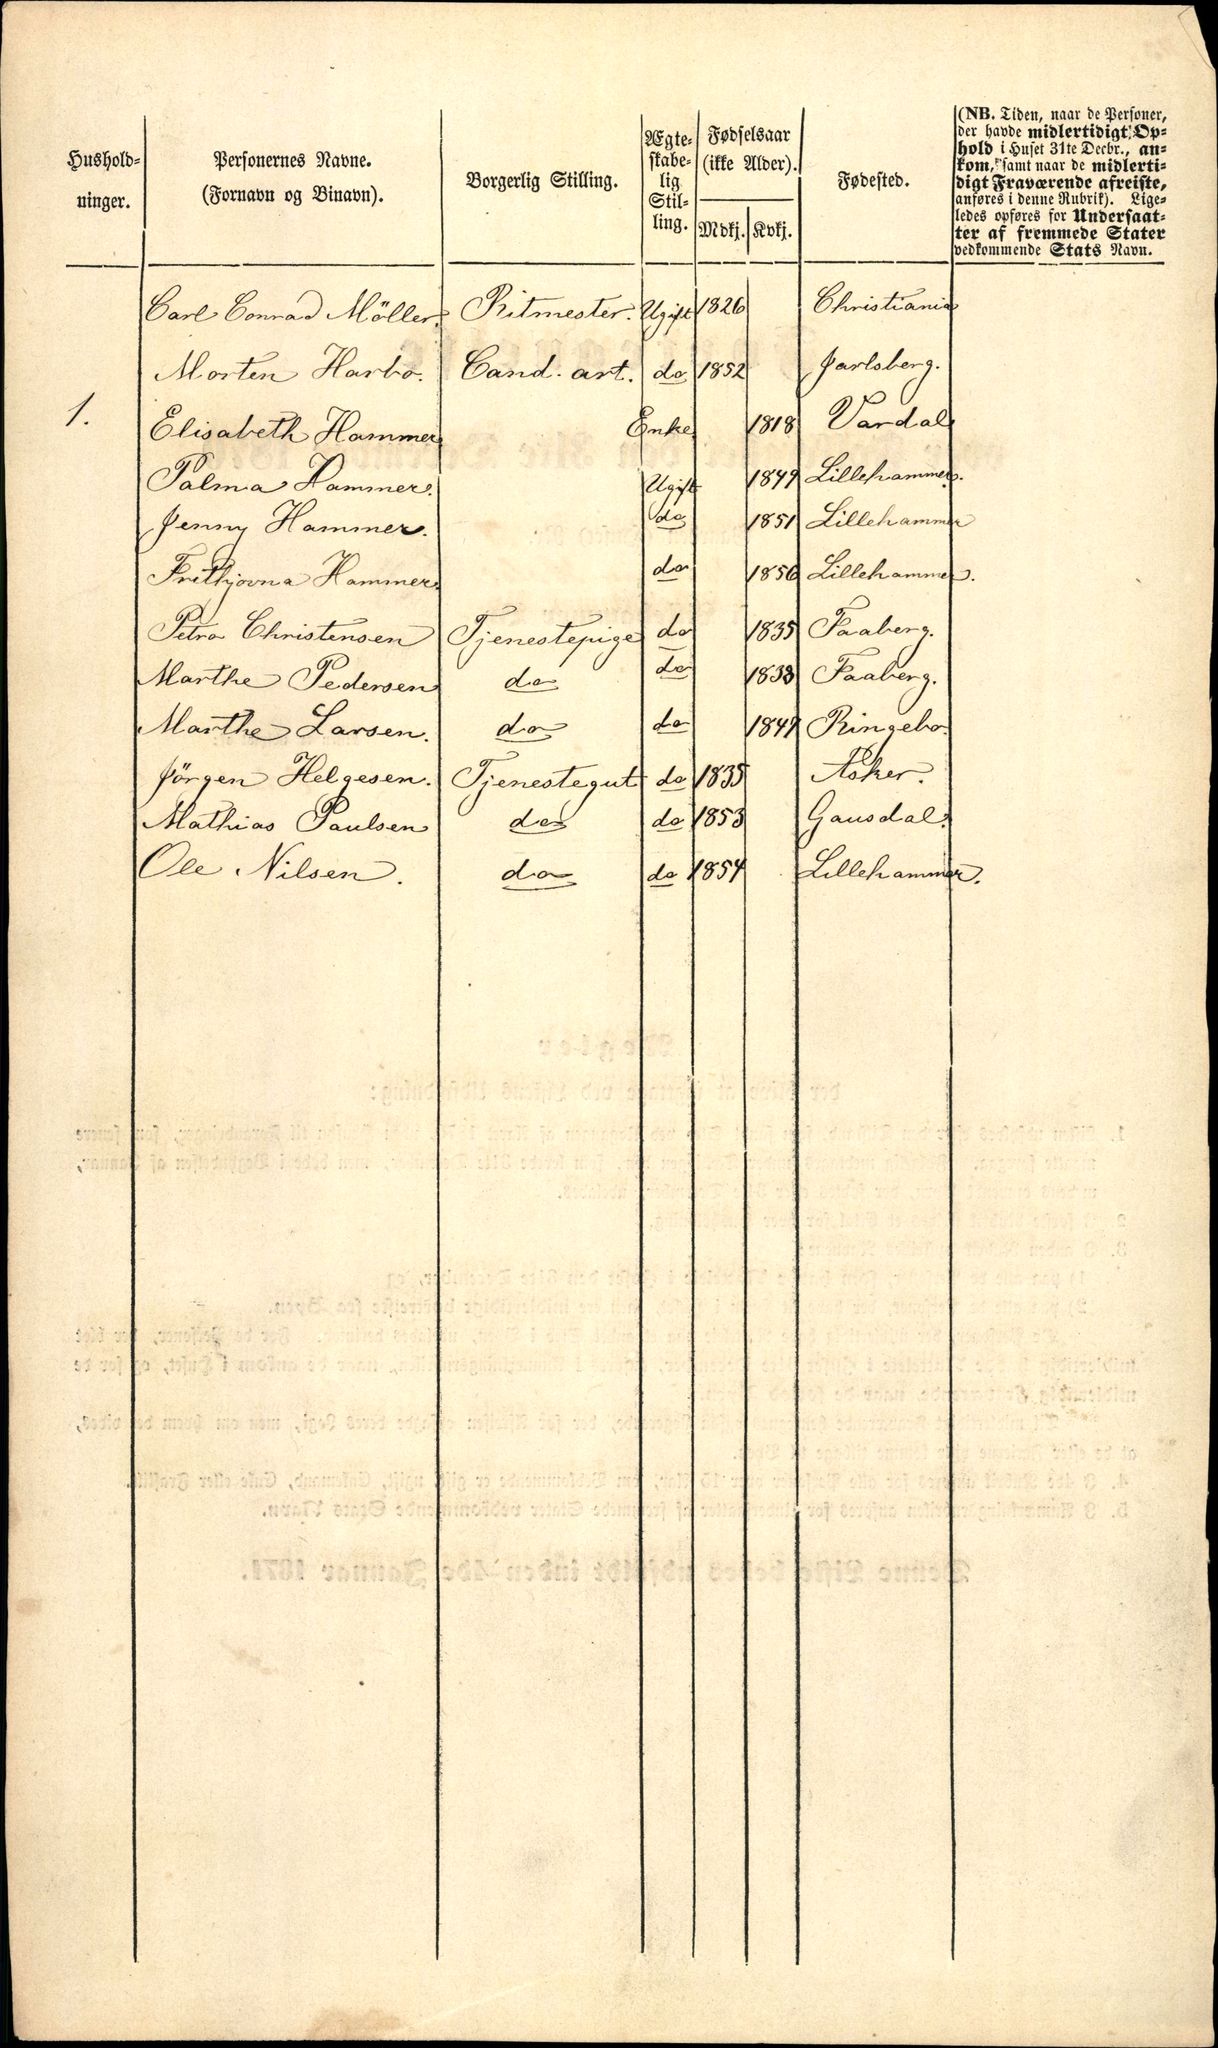 Hushold-
ninger.
Personernes Navne.
(Fornavn og Binavn).
Borgerlig Stilling.
Ægte-
skabe-
lig
Stil-
ling.
Fødselsaar
(ikke Alder).
Mdkj. Kvkj.
Fødested.
(NB. Tiden, naar de Personer,
der havde midlertidigt Op-
hold i Huset 31te Decbr., an-
kom, samt naar de midlerti-
digt Fraværende afreiste,
anføres i denne Rubrik). Lige-
ledes opføres for Undersaat-
ter af fremmede Stater
vedkommende Stats Navn.
Carl Conrad Möller. Ritmester. Ugift 1826 Christiania
Morten Harbo. Cand. art. do 1852 Jarlsberg.
1. Elisabeth Hammer Enke 1818 Vardal
Palma Hammer. Ugift 1849 Lillehammer.
Jenny Hammer. do 1851 Lillehammer
Frithjovna Hammer. do 1856 Lillehammer.
Petra Christensen Tjenestepige do 1835 Faaberg.
Marthe Pedersen do do 1838 Faaberg.
Marthe Larsen. do do 1849 Ringebo.
Jörgen Helgesen. Tjenestegut do 1835 Asker.
Mathias Paulsen do do 1853 Gausdal.
Ole Nilsen. do do 1854 Lillehammer.